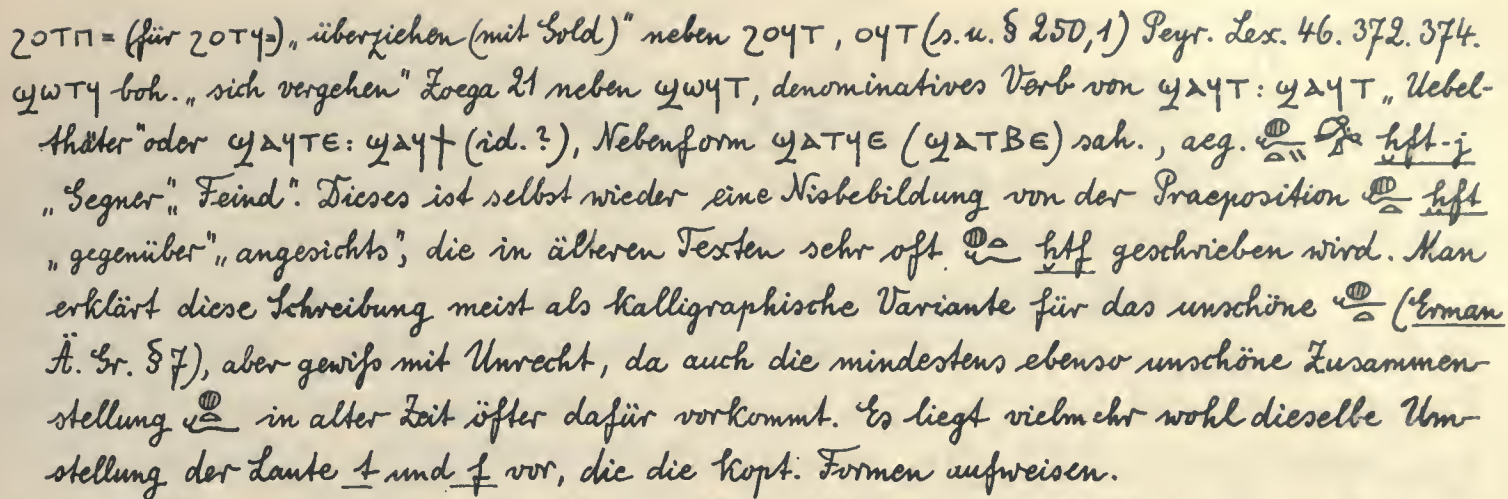 ϩⲟⲧⲡ= (für ϩⲟⲧϥ=) „überziehen (mit Gold)" neben ϩⲟϥⲧ, ⲟϥⲧ (s. u. § 250,1) Peyr. Lex. 46. 372. 374.
ϣⲱⲧϥ boh. „sich vergehen" Zoega 21 neben ϣⲱϥⲧ, denominatives Verb von ϣⲁϥⲧ: ϣⲁϥⲧ „Uebel-
thäter" oder ϣⲁϥⲧⲉ: ϣⲁϥϯ (id.?), Nebenform ϣⲁⲧϥⲉ (ϣⲁⲧⲃⲉ) sah., aeg. ḫft-j
„Gegner", „Feind". Dieses ist selbst wieder eine Nisbebildung von der Praeposition ḫft
„gegenüber", „angesichts", die in älteren Texten sehr oft ḫtf geschrieben wird. Man
erklärt diese Schreibung meist als kalligraphische Variante für das unschöne (Erman
Ä. Gr. § 7), aber gewiſs mit Unrecht, da auch die mindestens ebenso unschöne Zusammen-
stellung in alter Zeit öfter dafür vorkommt. Es liegt vielmehr wohl dieselbe Um-
stellung der Laute t und f vor, die die kopt. Formen aufweisen.